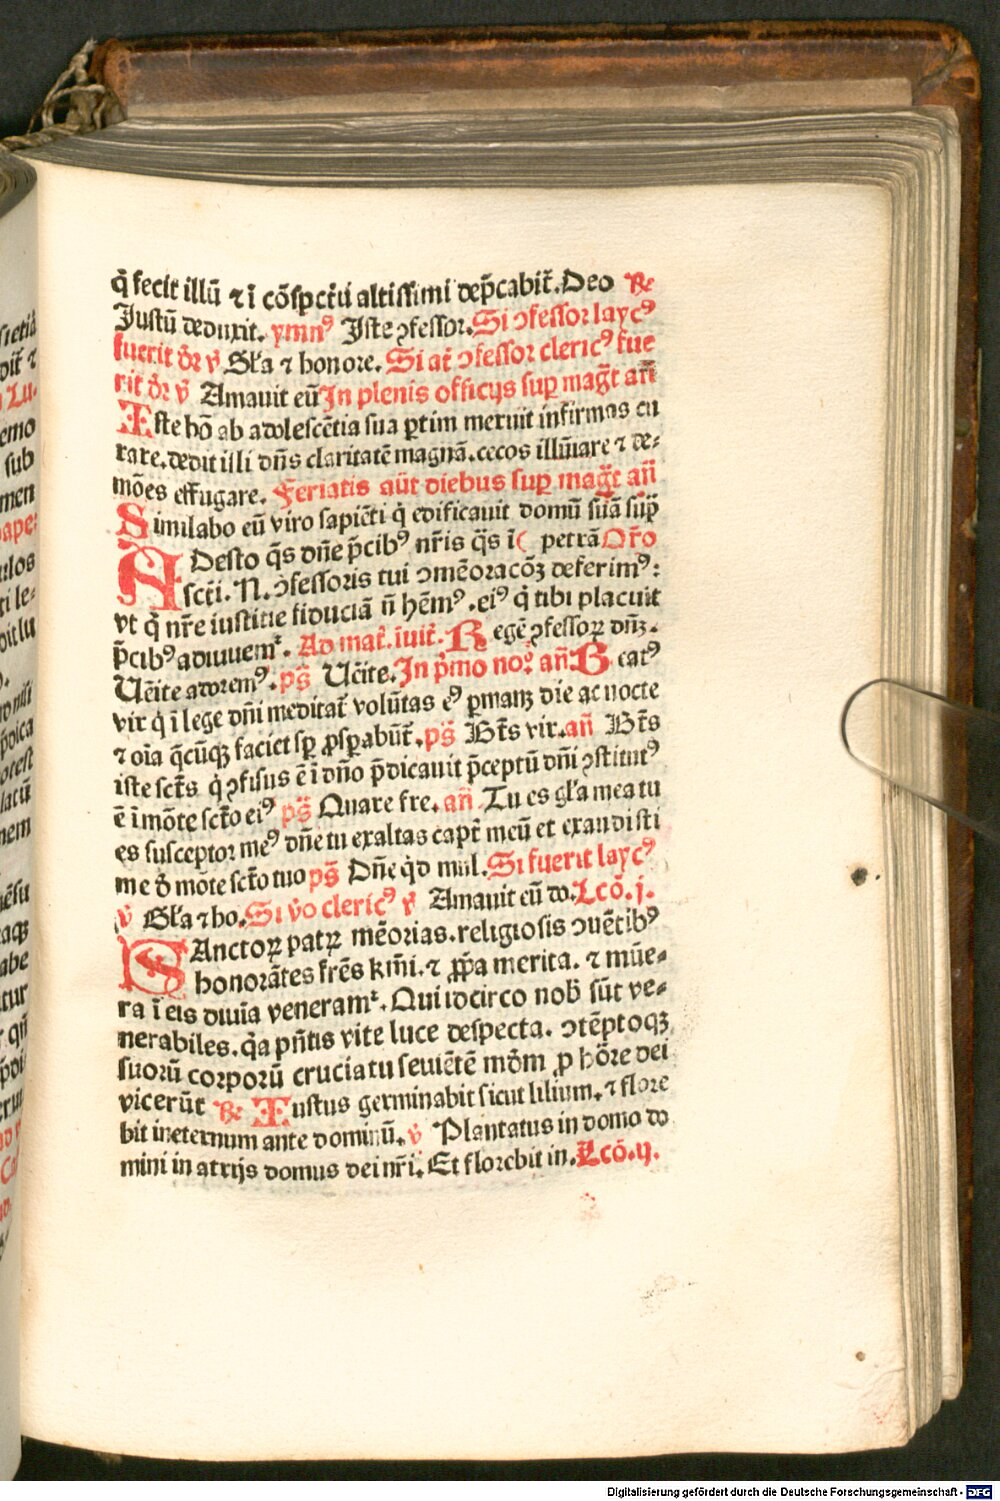 q̄ fecit illū ⁊ ī cōspctū altissimi dep̄cabit̄. Deo ℟
Justū deduxit. ymnꝰ Iste ↄfessor. Si ↄfessor laycꝰ
fuerit dr̄ ℣ Gl'a ⁊ honore. Si at̄ ↄfessor clericꝰ fue
rit dr̄ ℣ Amauit eū In plenis officijs sup maḡt an̄
Iste hō ab adolescētia sua ꝑtim meruit infirmos cu
rare. dedit illi dn̄s claritatē magnā. cecos illūiare ⁊ de⸗
mōes effugare. Feriatis aūt diebus sup maḡt an̄
Similabo eū viro sapiēti q̄ edificauit domū suā sup̄
ADesto q̄s dn̄e p̄cibꝰ nr̄is q̄s ī( petrā Or̄o
scti. N. ↄfessoris tui ↄmēoracōꝫ deferimꝰ:
vt q̄ nr̄e iustitie fiduciā n̄ hēmꝰ. eiꝰ q̄ tibi placuit
p̄cibꝰ adiuuemᷣ. Ad mat̄. īuit̄. Regē ↄfessoꝝ dn̄ꝫ.
Uēite adoremꝰ. ps̄ Uēite. In p̄mo noᷣ. an̄ Beatꝰ
vir q̄ ī lege dn̄i meditat̄ volūtas eꝰ ꝑmanꝫ die ac nocte
⁊ oīa q̄cūqꝫ faciet sꝑ ꝓsꝑabūt̄. ps̄ Bt̄s vir. an̄ Bt̄s
iste sct̄s q̄ ↄfisus ē ī dn̄o p̄dicauit p̄ceptū dn̄i ↄstitutꝰ
ē ī mōte sct̄o eiꝰ ps̄ Quare fre. an̄ Tu es gl'a mea tu
es susceptor meꝰ dn̄e tu exaltas capt̄ meū et exaudisti
me d̄ mōte sct̄o tuo ps̄ Dn̄e q̇d mul. Si fuerit laycꝰ
℣ Gl'a ⁊ ho. Si v̄o clericꝰ ℣ Amauit eū do. Lcō. j.
SAnctoꝝ patꝝ mēorias. religiosis ↄuētibꝰ
honorātes frēs km̄i. ⁊ ꝓp̄a merita. ⁊ mūe⸗
ra ī eis diuīa veneramᷣ. Qui idcirco nob̄ sūt ve⸗
nerabiles. q̄a pn̄tis vite luce despecta. ↄtēptoqꝫ
suorū corporū cruciatu seuiētē mōm ꝓ hōre dei
vicerūt ℟ Iustus germinabit sicut lilium. ⁊ flore
bit ineternum ante dominū. ℣ Plantatus in domo do
mini in atrijs domus dei nr̄i. Et florebit in. Lcō. ij.
Digitalisierung gefördert durch die Deutsche Forschungsgemeinschaft - DFG